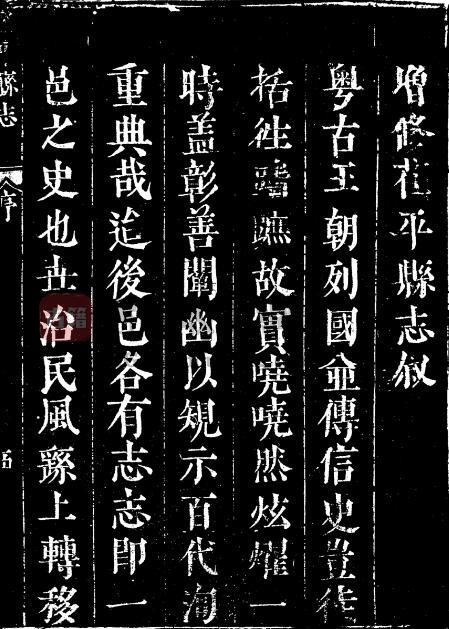 增修茌平縣志叙
粤古王朝列國並傳信史豈徒
括徃蹟蹠故實嘵嘵然炫燿一
時盖彰善闡幽以規示百代洵
重典哉迨後邑各有志志即一
邑之史也世治民風繇上轉移
縣志
序
五